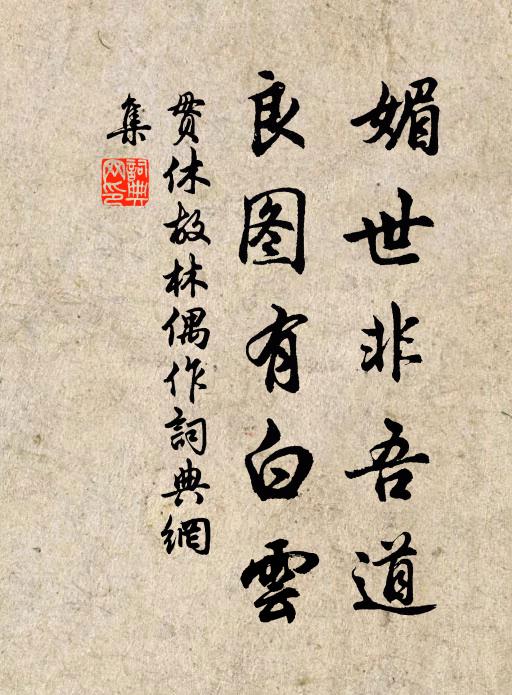 媚世非吾道
良图有白雲
贯休故林偶作詞典網
集
詞典
网印